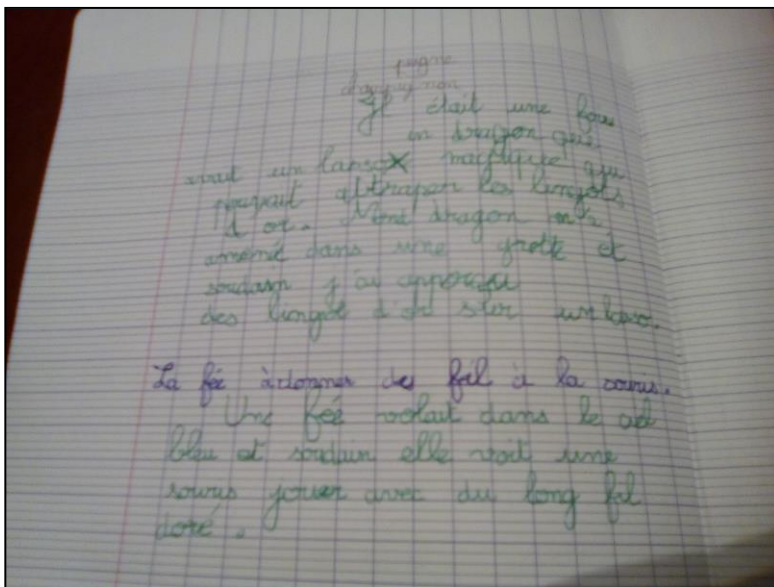 peigne
Il était une fois
un dragon qui
avait un lanso magique qui
pouvait attraper les lingots
d'or. Mon dragon m'a
amené dans une grotte et
soudain j'ai apperçu
des lingot d'or sur un lasso.
La fée à donner du fil à la souris.
Une feé volait dans le ciel
bleu et soudain elle voit une
souris jouer avec du long fil
doré.